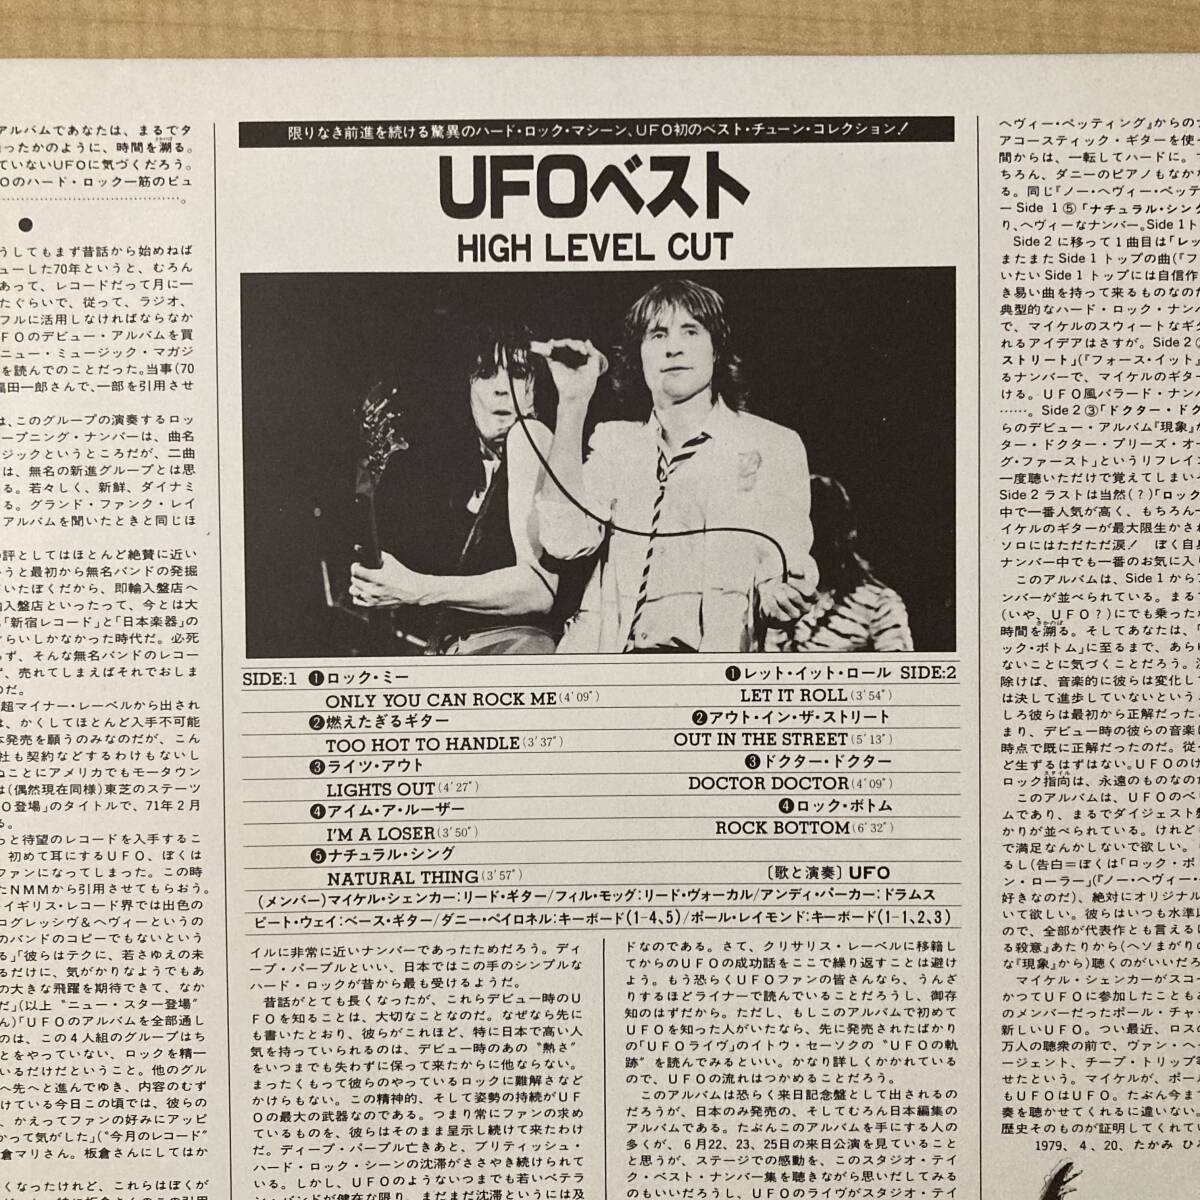 アルバムであなたは、まるでタ
ったかのように、時間を溯る。
ていないUFOに気づくだろう。
Oのハード・ロック一筋のビュ
●
うしてもまず昔話から始めねば
ューした70年というと、むろん
あって、レコードだって月に一
たぐらいで、従って、ラジオ、
フルに活用しなければならなか
FOのデビュー・アルバムを買
ニュー・ミュージック・マガジ
を読んでのことだった。当事(70
福田一郎さんで、一部を引用させ
は、このグループの演奏するロッ
ープニング・ナンバーは、曲名
ジックというところだが、二曲
は、無名の新進グループとは思
る。若々しく、新鮮、ダイナミ
る。グランド・ファンク・レイ
アルバムを聞いたときと同じほ
の評としてはほとんど絶賛に近い
うと最初から無名バンドの発掘
いたぼくだから、即輸入盤店へ
輸入盤店といったって、今とは大
「新宿レコード」と「日本楽器」の
ぐらいしかなかった時代だ。必死
らず、そんな無名バンドのレコー
ず、売れてしまえばそれでおしま
のだ。
超マイナー・レーベルから出され
は、かくしてほとんど入手不可能
本発売を願うのみなのだが、こん
社も契約などするわけもないし
ぬことにアメリカでもモータウン
は(偶然現在同様)東芝のステーツ
O登場」のタイトルで、71年2月
る。
っと待望のレコードを入手するこ
初めて耳にするUFO、ぼくは
ファンになってしまった。この時
たNMMから引用させてもらおう。
イギリス・レコード界では出色の
ログレッシヴ&ヘヴィーというの
のバンドのコピーでもないという
る」「彼らはテクに、若さゆえの未
るだけに、気がかりなようでもあ
の大きな飛躍を期待できて、なか
だ」(以上〝ニュー・スター登場〟
ん)「UFOのアルバムを全部通し
のは、この4人組のグループはち
とをやっていない、ロックを精一
いるだけだということ。他のグル
へ先へと進んでゆき、内容のむず
けている今日この頃では、彼らの
、かえってファンの好みにアッピ
かって気がした」(〝今月のレコード〟
倉マリさん。板倉さんにしてはか
くなったけれど、これらはぼくが
限りなき前進を続ける驚異のハード・ロック・マシーン、UFO初のベスト・チューン・コレクション!
UFOベスト
HIGH LEVEL CUT
SIDE:1 ❶ロック・ミー
ONLY YOU CAN ROCK ME(4′09″)
❷燃えたぎるギター
TOO HOT TO HANDLE(3′37″)
❸ライツ・アウト
LIGHTS OUT(4′27″)
❹アイム・ア・ルーザー
I'M A LOSER(3′50″)
❺ナチュラル・シング
NATURAL THING(3′57″)
❶レット・イット・ロール SIDE:2
LET IT ROLL(3′54″)
❷アウト・イン・ザ・ストリート
OUT IN THE STREET(5′13″)
❸ドクター・ドクター
DOCTOR DOCTOR(4′09″)
❹ロック・ボトム
ROCK BOTTOM(6′32″)
〔歌と演奏〕UFO
(メンバー)マイケル・シェンカー:リード・ギター/フィル・モッグ:リード・ヴォーカル/アンディ・パーカー:ドラムス
ピート・ウェイ:ベース・ギター/ダニー・ペイロネル:キーボード(1-4、5)/ポール・レイモンド:キーボード(1-1、2、3)
イルに非常に近いナンバーであったためだろう。ディ
ープ・パープルといい、日本ではこの手のシンプルな
ハード・ロックが昔から最も受けるようだ。
昔話がとても長くなったが、これらデビュー時のU
FOを知ることは、大切なことなのだ。なぜなら先に
も書いたとおり、彼らがこれほど、特に日本で高い人
気を持っていられるのは、デビュー時のあの〝熱さ〟
をいつまでも失わずに保って来たからに他ならない。
まったくもって彼らのやっているロックに難解さなど
かけらもない。この精神的、そして姿勢の持続がUF
Oの最大の武器なのである。つまり常にファンの求め
ているものを、彼らはそのまま呈示し続けて来たわけ
だ。ディープ・パープル亡きあと、ブリティッシュ・
ハード・ロック・シーンの沈滞がささやき続けられて
いる。しかし、UFOのようないつまでも若いベテラ
ン・バンドが健在な限り、まだまだ沈滞というには及
ドなのである。さて、クリサリス・レーベルに移籍し
てからのUFOの成功話をここで繰り返すことは避け
よう。もう恐らくUFOファンの皆さんなら、うんざ
りするほどライナーで読んでいることだろうし、御存
知のはずだから。ただし、もしこのアルバムで初めて
UFOを知った人がいたなら、先に発売されたばかり
の「UFOライヴ」のイトウ・セーソクの〝UFOの軌
跡〟を読んでみるといい。かなり詳しくかかれている
ので、UFOの流れはつかめることだろう。
このアルバムは恐らく来日記念盤として出されるの
だろうが、日本のみ発売の、そしてむろん日本編集の
アルバムである。たぶんこのアルバムを手にする人の
多くが、6月22、23、25日の来日公演を見ていること
と思うが、ステージでの感動を、このスタジオ・テイ
ク・ベスト・ナンバー集を聴きながら思いだしてみる
のもいいだろうし、UFOのライヴがスタジオ・テイ
ヘヴィー・ペッティング』からのナ
アコースティック・ギターを使っ
間からは、一転してハードに。
ちろん、ダニーのピアノもなかな
る。同じ『ノー・ヘヴィー・ペッテ
ーSide 1⑤「ナチュラル・シング
り、ヘヴィーなナンバー。Side 1ト
Side 2に移って1曲目は「レッ
またまたSide 1トップの曲(『フ
いたいSide 1トップには自信作
き易い曲を持って来るものなのだ
典型的なハード・ロック・ナンバ
で、マイケルのスウィートなギタ
れるアイデアはさすが。Side 2②
ストリート」(『フォース・イット』
るナンバーで、マイケルのギター
ける。UFO風バラード・ナンバ
……。Side 2③「ドクター・ドク
らのデビュー・アルバム『現象』か
ター・ドクター・プリーズ・オ
グ・ファースト」というリフレイン
一度聴いただけで覚えてしまい
Side 2ラストは当然(?)「ロック
中で一番人気が高く、もちろん
イケルのギターが最大限生かされ
ソロにはただただ涙! ぼく自身
ナンバー中でも一番のお気に入り
このアルバムは、Side 1から
ンバーが並べられている。まる
(いや、UFO?)にでも乗ったか
時間を溯る。そしてあなたは、
ック・ボトム」に至るまで、あら
ないことに気づくことだろう。
除けば、音楽的に彼らは変化して
は決して進歩していないという
しろ彼らは最初から正解だった
まり、デビュー時の彼らの音楽
時点で既に正解だったのだ。従
ど生ずるはずはない。UFOのけ
ロック指向は、永遠のものなのだ
このアルバムは、UFOのベ
ムであり、まるでダイジェスト盤
かりが並べられている。けれど
で満足なんかしないで欲しい。
るし(告白=ぼくは「ロック・ボ
ン・ローラー」(『ノー・ヘヴィー・
好きなのだ)、絶対にオリジナル
いて欲しい。彼らはいつも水準
ので、全部が代表作とも言える
る殺意』あたりから(ヘソまがりの
な『現象』から)聴くのがいいだろ
マイケル・シェンカーがスコ
かつてUFOに参加したことも
のメンバーだったポール・チャ
新しいUFO。つい最近、ロス
万人の聴衆の前で、ヴァン・ヘ
ージェント、チープ・トリック等
せたという。マイケルが、ポー
もUFOはUFO。たぶん今まで
奏を聴かせてくれるに違いない
歴史そのものが証明してくれてい
1979、4、20、たかみ ひ